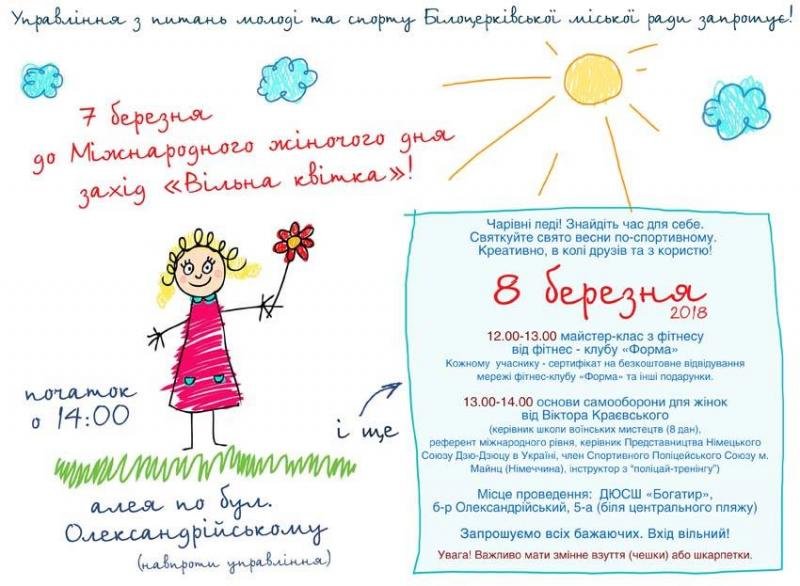 Управління з питань молоді та спорту Білоцерківської міської ради запрошує!
7 березня
до Міжнародного жіночого дня
захід «Вільна квітка»!
початок
о 14:00
алея по бул.
Олександрійському
(навпроти управління)
і ще
Чарівні леді! Знайдіть час для себе.
Святкуйте свято весни по-спортивному.
Креативно, в колі друзів та з користю!
8 березня
2018
12.00-13.00 майстер-клас з фітнесу
від фітнес - клубу «Форма»
Кожному учаснику - сертифікат на безкоштовне відвідування
мережі фітнес-клубу «Форма» та інші подарунки.
13.00-14.00 основи самооборони для жінок
від Віктора Краєвського
(керівник школи воїнських мистецтв (8 дан),
референт міжнародного рівня, керівник Представництва Німецького
Союзу Дзю-Дзюцу в Україні, член Спортивного Поліцейського Союзу м.
Майнц (Німеччина), інструктор з "поліцай-тренінгу")
Місце проведення: ДЮСШ «Богатир»,
б-р Олександрійський, 5-а (біля центрального пляжу)
Запрошуємо всіх бажаючих. Вхід вільний!
Увага! Важливо мати змінне взуття (чешки) або шкарпетки.